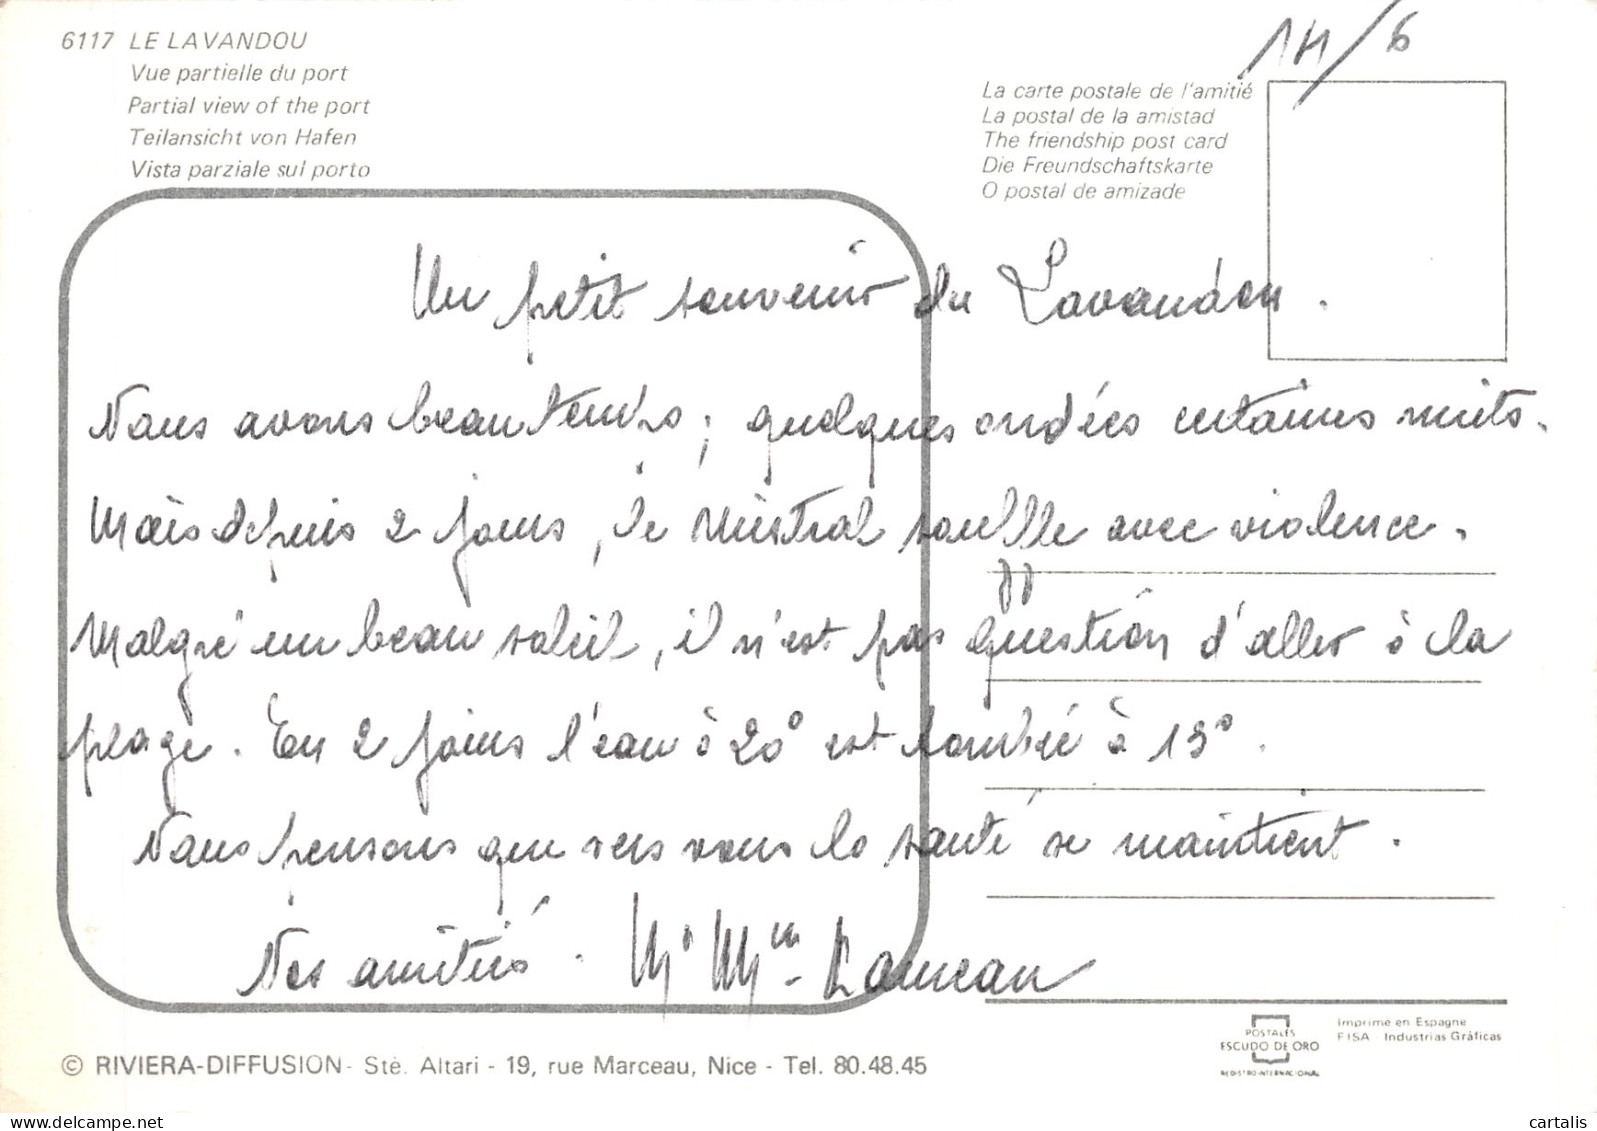 6117 LE LAVANDOU
Vue partielle du port
Partial view of the port
Teilansicht von Hafen
Vista parziale sul porto
14/6
La carte postale de l'amitié
La postal de la amistad
The friendship post card
Die Freundschaftskarte
O postal de amizade
Un petit souvenir du Lavandou.
Nous avons beau temps ; quelques ondées certaines nuits.
Mais depuis 2 jours, le Mistral souffle avec violence.
Malgré un beau soleil, il n'est pas question d'aller à la
plage. En 2 jours l'eau à 20° est tombée à 15°.
Nous pensons que vers vous la santé se maintient.
Nos amitiés. Mr Mme
© RIVIERA-DIFFUSION - Sté. Altari - 19, rue Marceau, Nice - Tel. 80.48.45
POSTALES
ESCUDO DE ORO
REGISTRO INTERNACIONAL
Imprimé en Espagne
FISA - Industrias Gráficas
cartalis